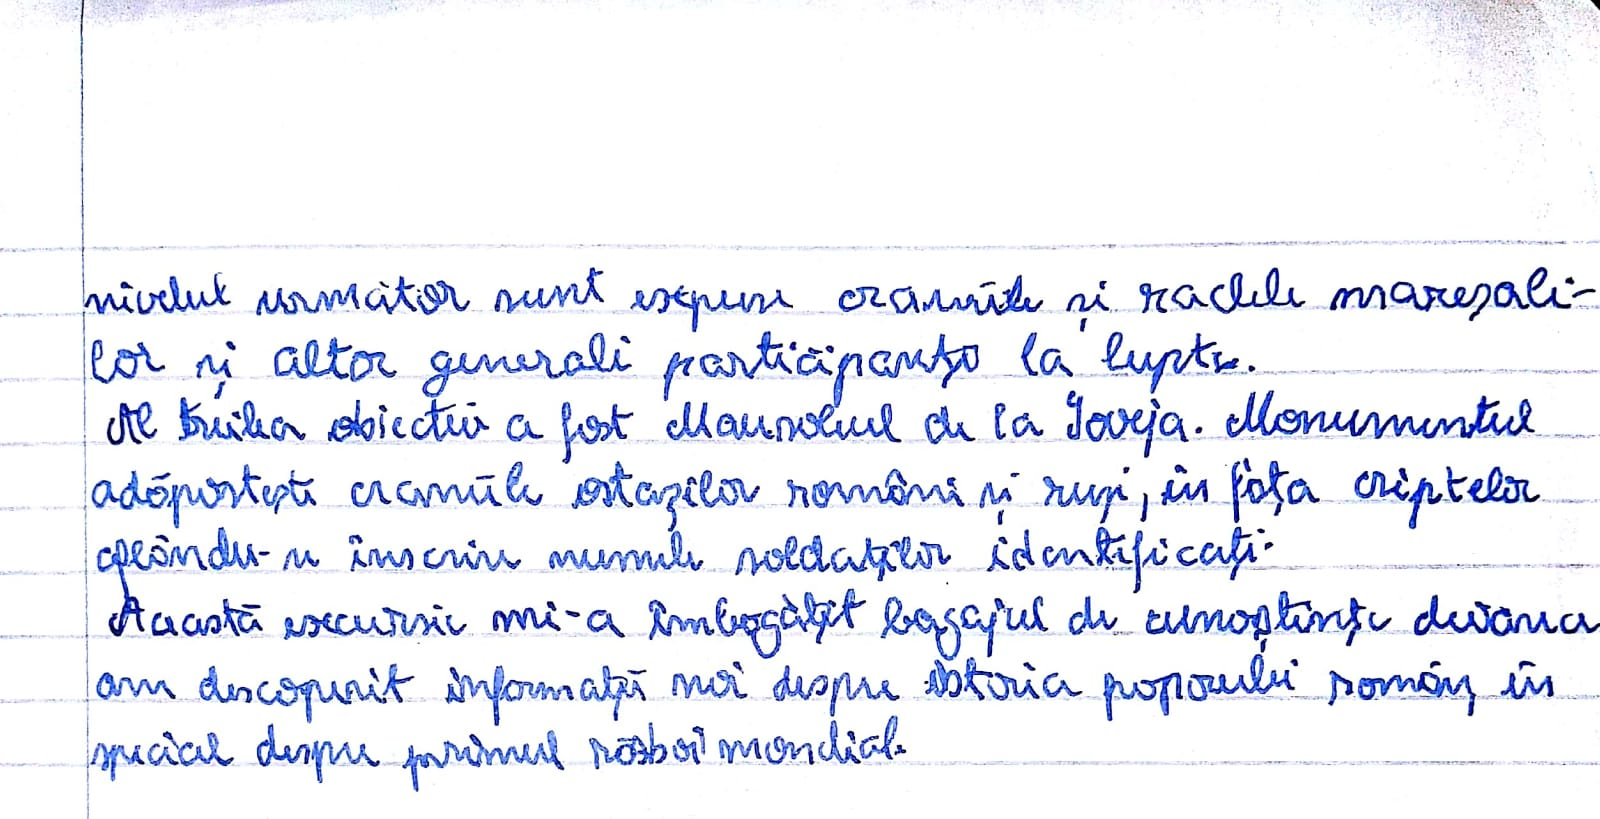 nivelul următor sunt expuse craniile și raclele mareșali-
lor și altor generali participanți la lupte.
Al treilea obiectiv a fost Mausoleul de la Soveja. Monumentul
adăpostește craniile ostașilor români și ruși, în fața criptelor
aflându-se înscrise numele soldaților identificați.
Această excursie mi-a îmbogățit bagajul de cunoștințe deoarece
am descoperit informații noi despre istoria poporului român, în
special despre primul război mondial.